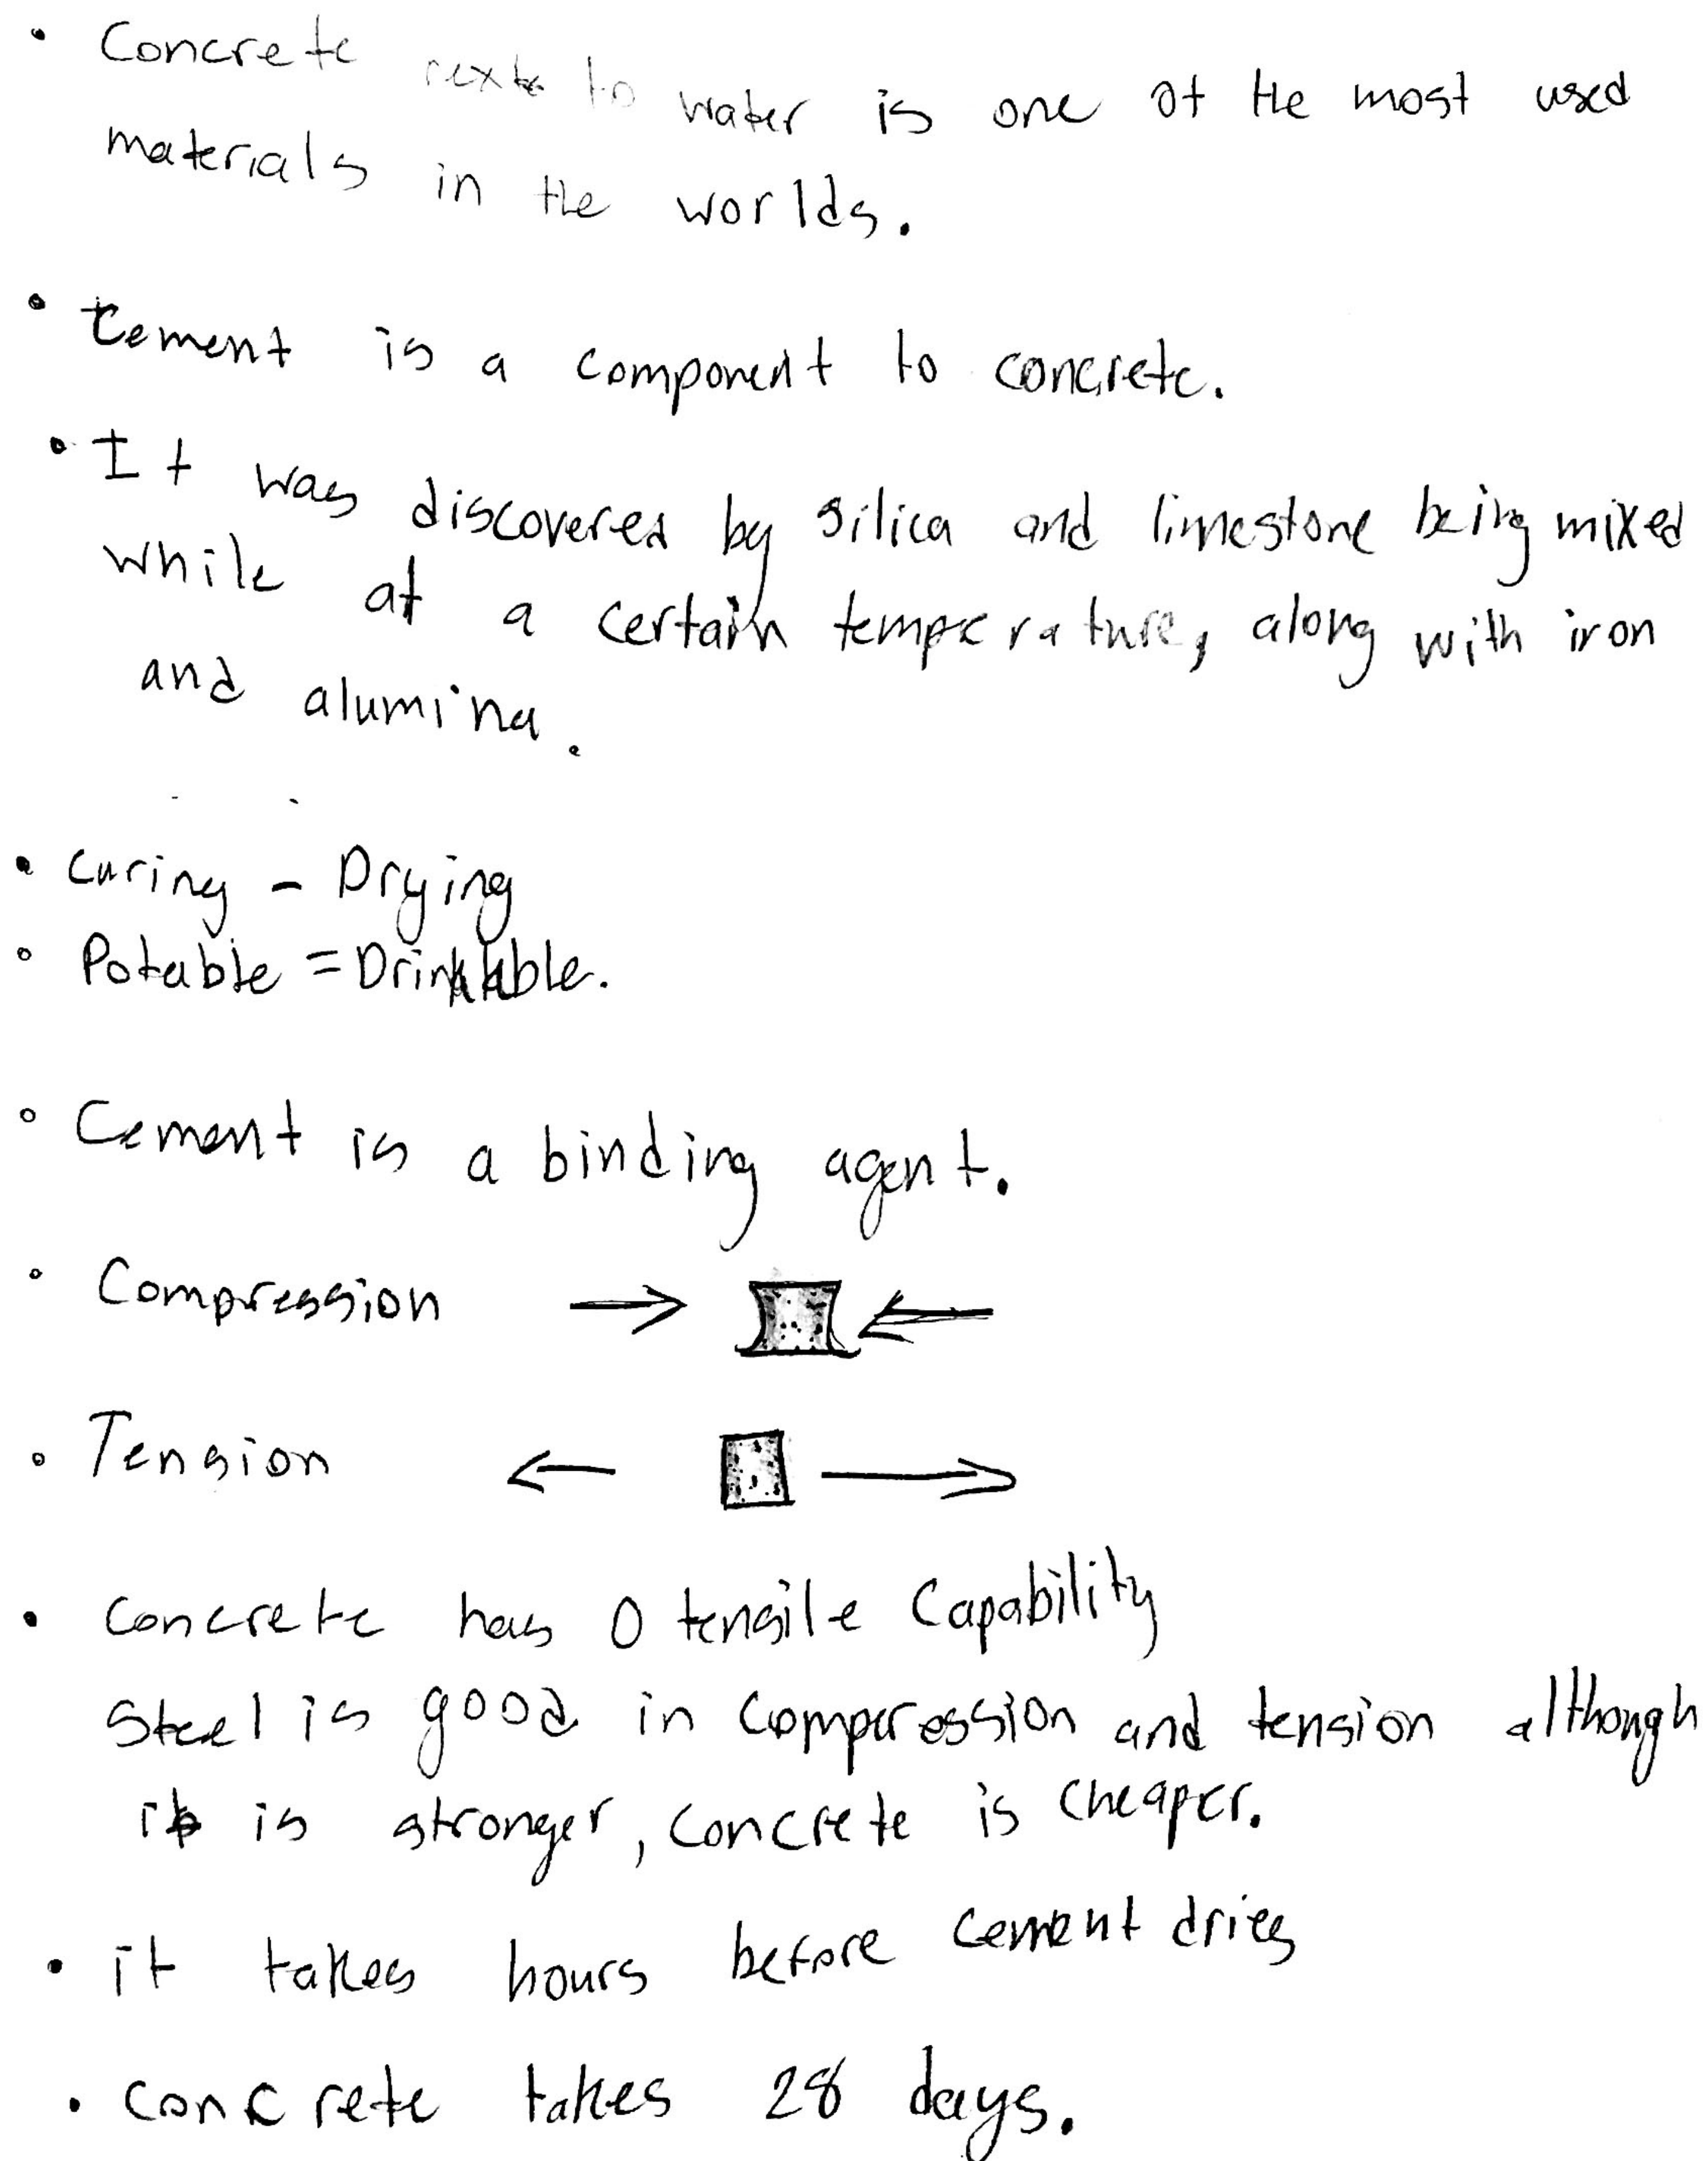 • Concrete next to water is one of the most used
materials in the worlds.
• Cement is a component to concrete.
• It was discovered by silica and limestone being mixed
while at a certain temperature, along with iron
and alumina.
• Curing - Drying
• Potable = Drinkable.
• Cement is a binding agent.
• Compression
• Tension
• Concrete has 0 tensile Capability
Steel is good in comparession and tension although
it is stronger, concrete is cheaper.
• it takes hours before cement dries
• concrete takes 28 days.